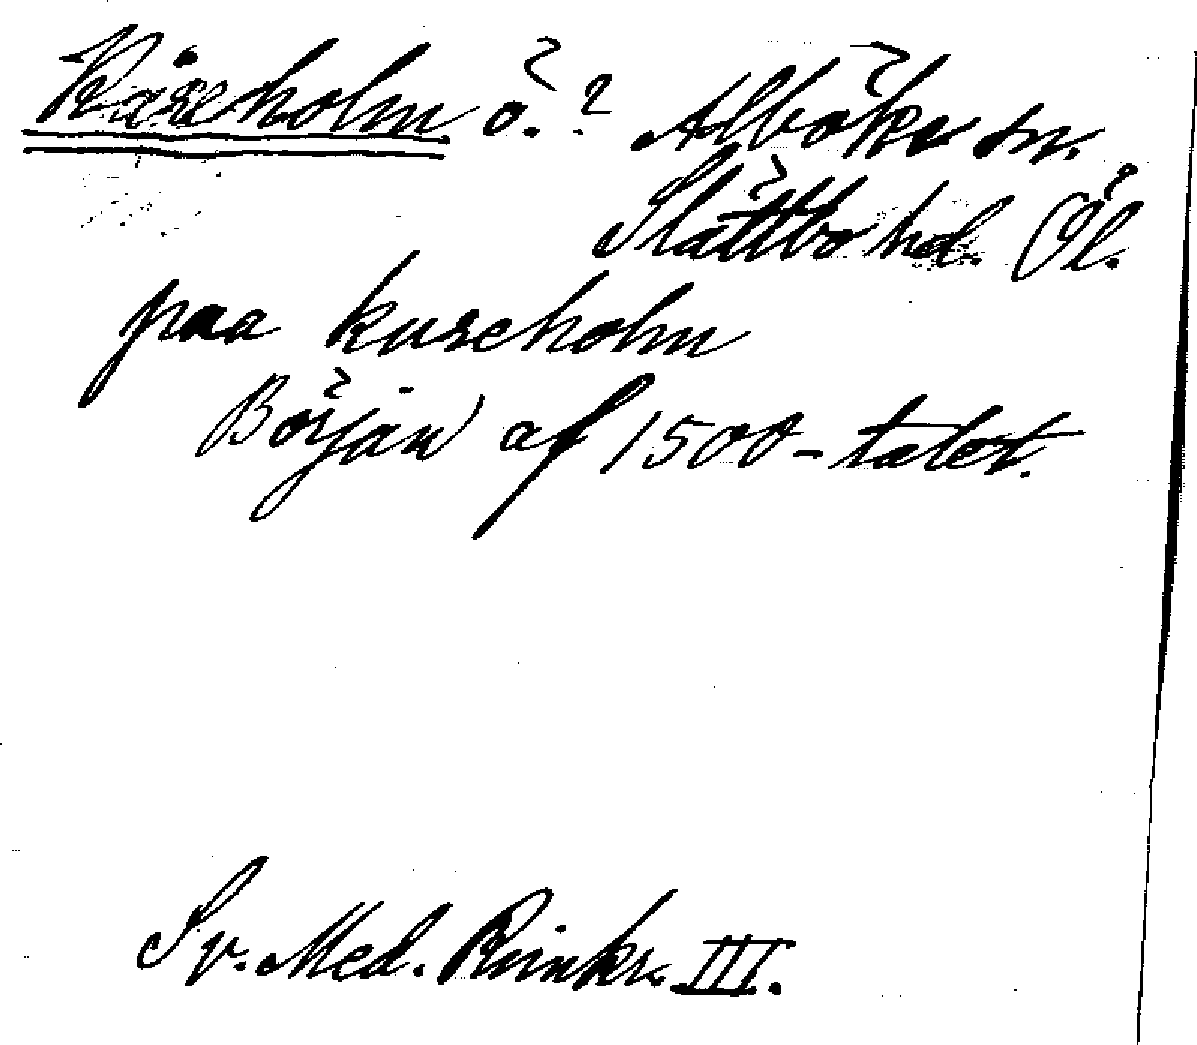 Kåreholm ö.? Alböke sn.
Slättbo hd. Öl.
paa kureholm
Början af 1500-talet.
Sv. Med. Rimkr. III.